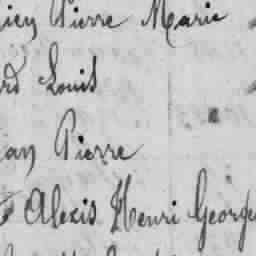 Pierre Marie
Louis
Pierre
Alexis Henri George